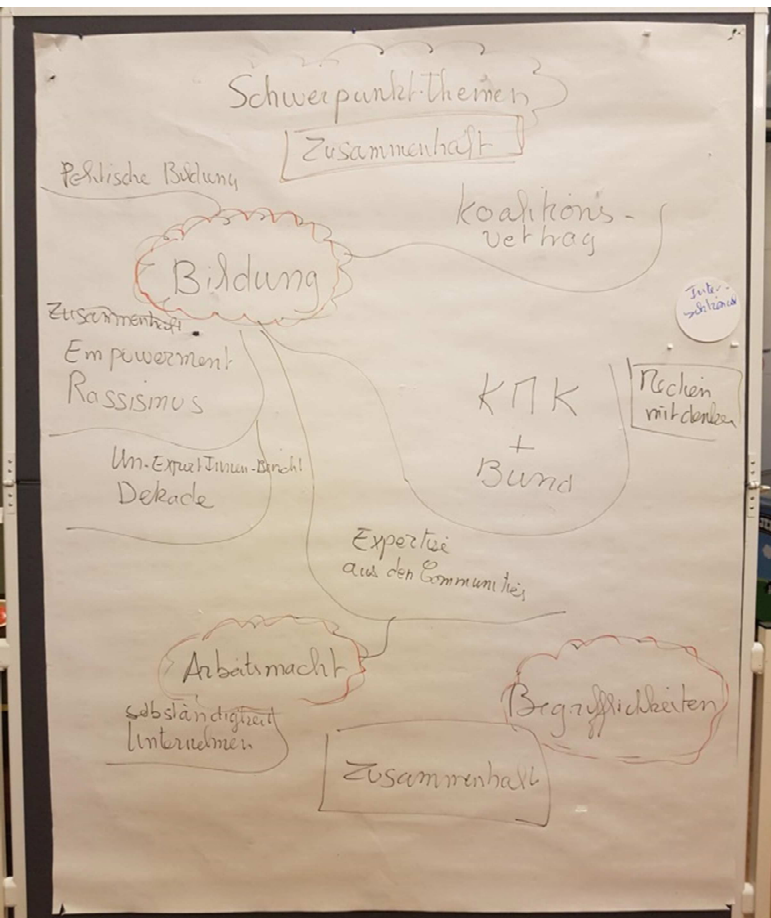 Schwerpunkt-themen
Zusammenhalt
Politische Bildung
Koalitions-
vertrag
Bildung
Inter-
Zusammenhalt
Empowerment
Rassismus
KMK
+
Bund
mitdenken
Un-ExpertInnen-Bericht
Dekade
Expertise
aus den Communities
Arbeitsmacht
Begrifflichkeiten
Selbständigkeit
Unternehmen
Zusammenhalt